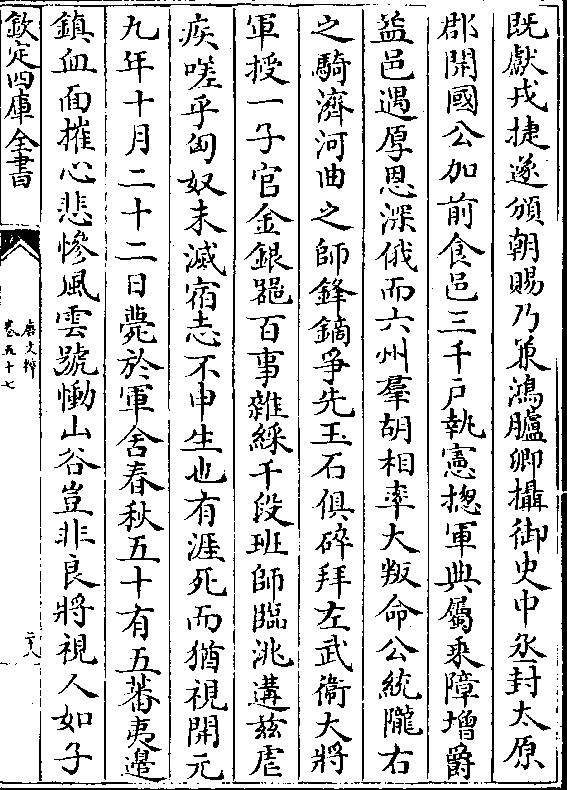 既獻戎捷遂頒朝賜乃兼鴻臚卿攝御史中丞封太原
郡開國公加前食邑三千戶執憲摠軍典屬乘障增爵
益邑遇厚恩深俄而六州羣胡相率大叛命公統隴右
之騎濟河曲之師鋒鏑爭先玉石俱碎拜左武衞大將
軍授一子官金銀器百事雜綵千段班師臨洮遘兹虐
疾嗟乎匈奴未滅宿志不申生也有涯死而猶視開元
九年十月二十二日薨於軍舍春秋五十有五蕃夷邊
鎮血面摧心悲慘風雲號慟山谷豈非良將視人如子
欽定四庫全書
唐文粹
卷五十七